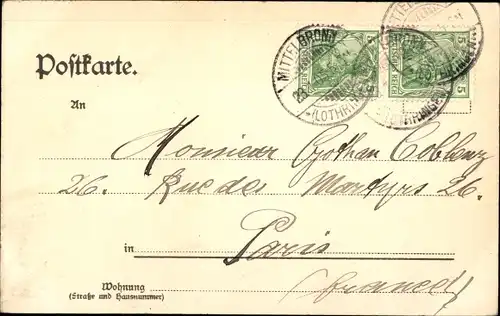 MITTELBRONN
(LOTHRINGEN)
5 5
REICH
Postkarte.
An
Monsieur Gothan Coblenz
26. Rue des Martyrs 26.
in Paris
(France)
Wohnung
(Straße und Hausnummer)